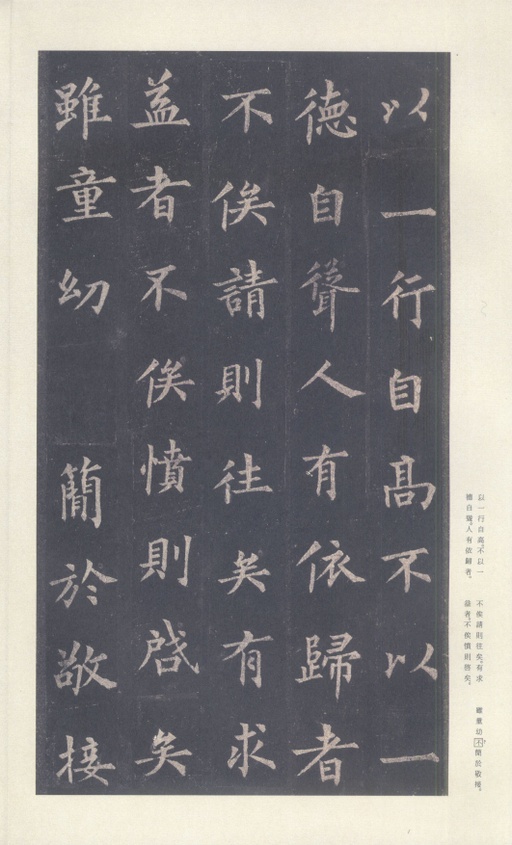 以一行自高不以一
德自聳人有依歸者
不俟請則往矣有求
益者不俟憤則啓矣
雖童幼 簡於敬接
以一行自高。不以一
德自聳。人有依歸者。
不俟請則往矣。有求
益者。不俟憤則啓矣。
雖童幼不簡於敬接。